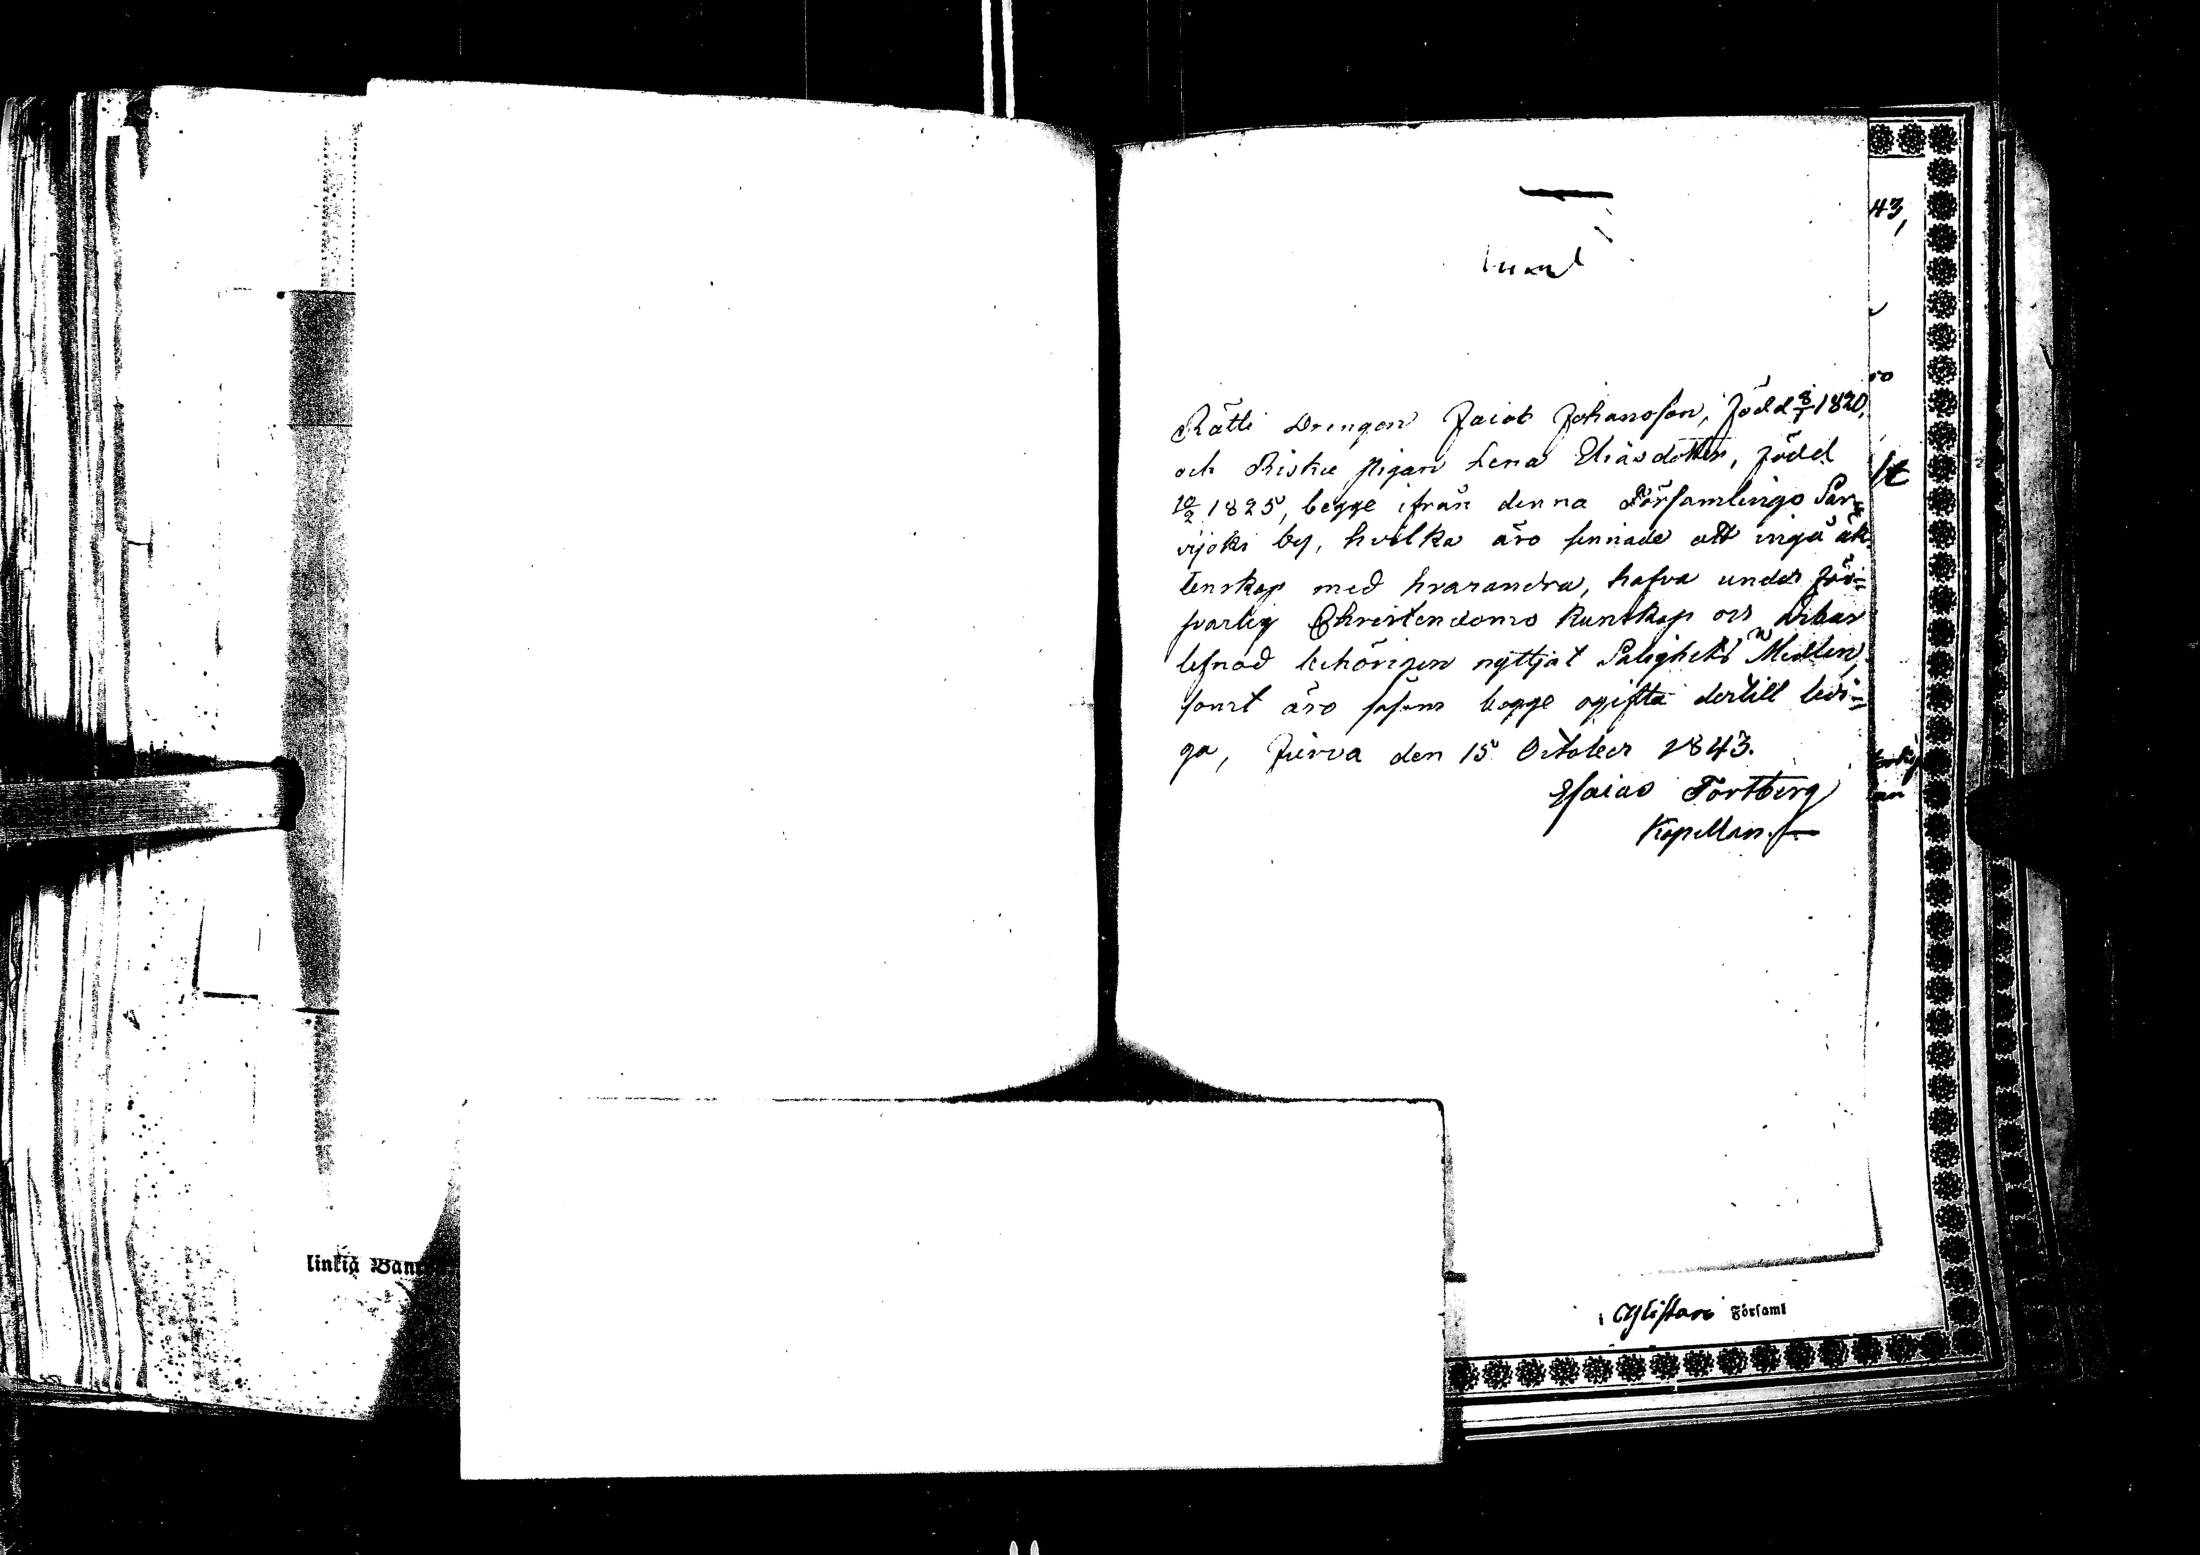 Rätti Drengen Jacob Johansson, född 8/1 1820,
och Risku pigan Lena Eliasdotter, född
10/2 1825, begge ifrån denna Församlings Sar-
vijoki by, hvilka äro sinnade att ingå äk-
tenskap med hvarandra, hafva under för-
svarlig Christendoms kunskap och ärbar
lefnad behörigen nyttjat Salighets Medlen,
samt äro såsom begge ogifta dertill ledi-
ga, Jurva den 15 October 1843.
Esaias Fortberg
Kapellan.
43,
linkia
i Ylistaro Församl